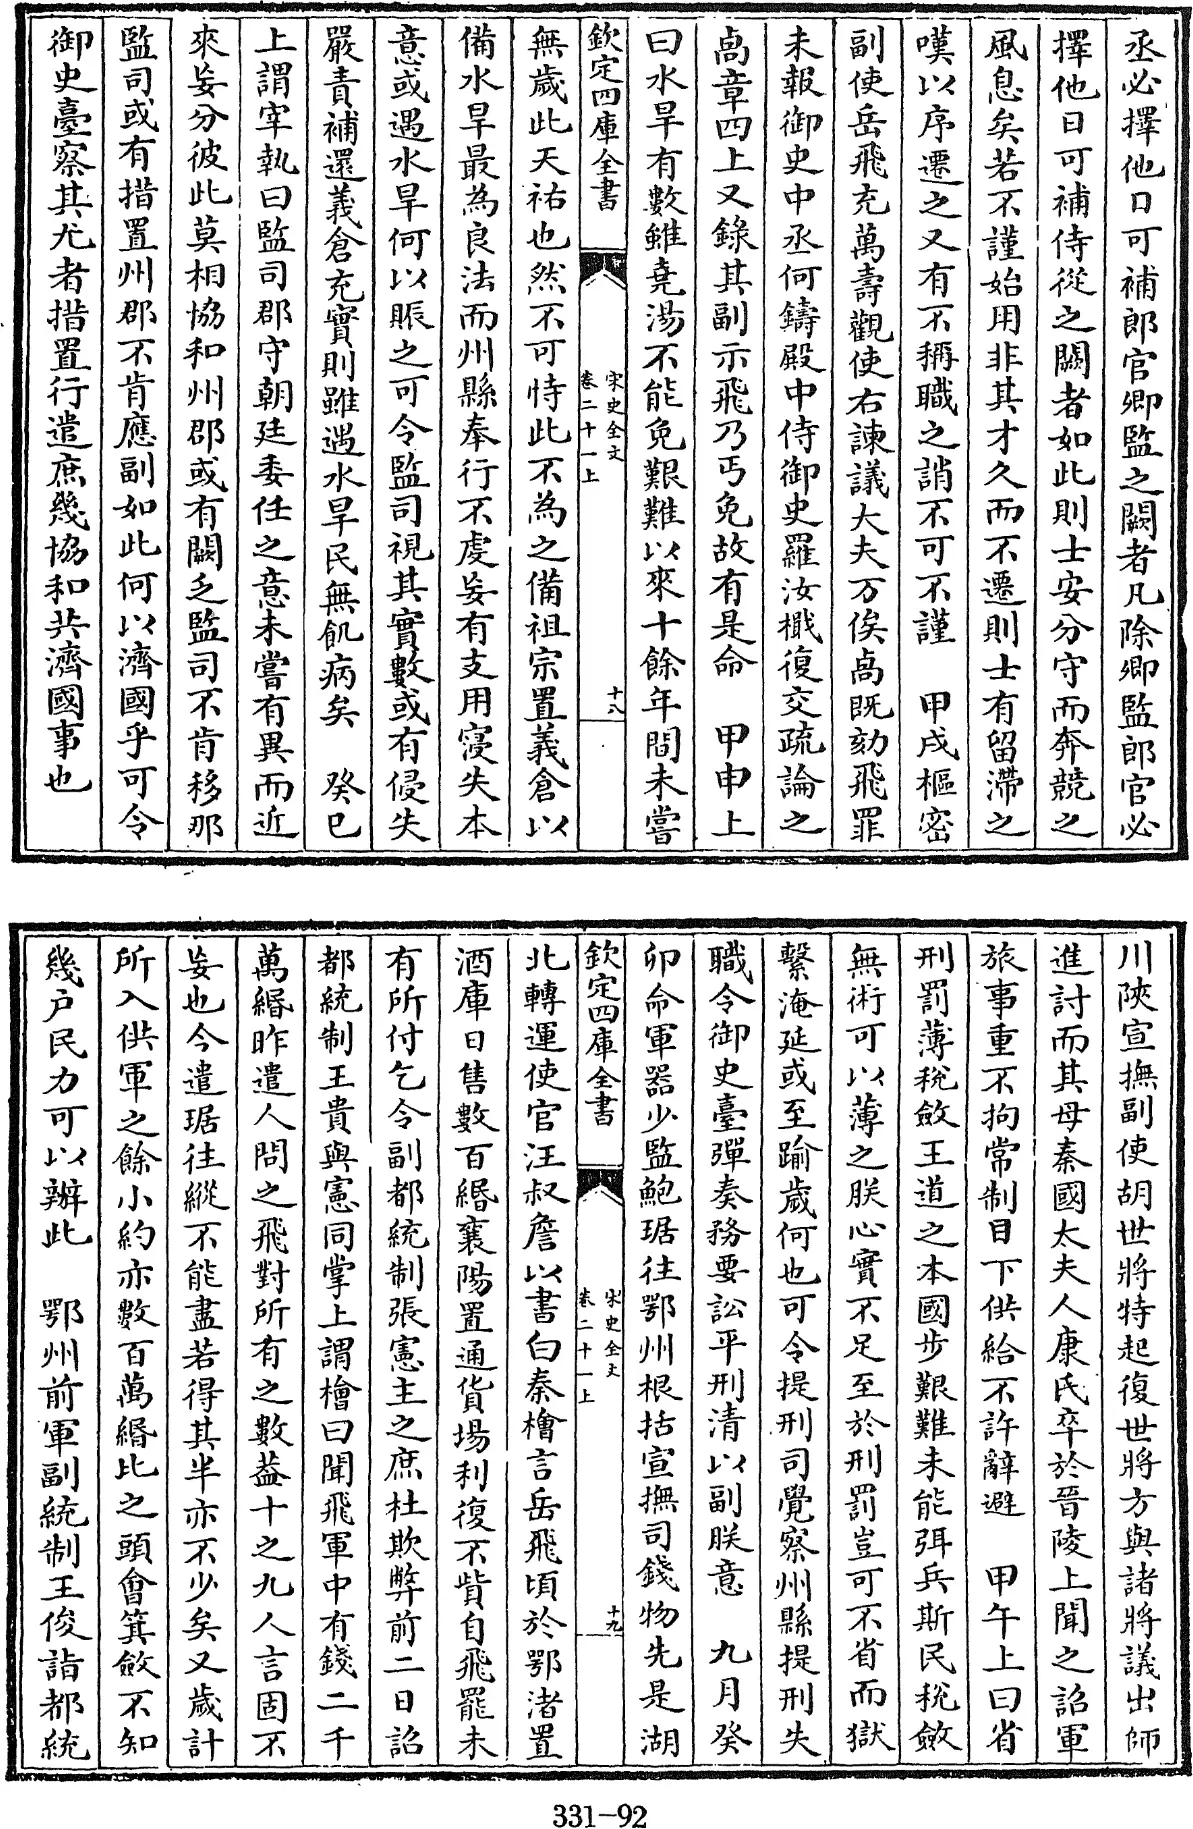 丞必擇他日可補郎官卿監之闕者凡除卿監郎官必
擇他日可補侍從之闕者如此則士安分守而奔競之
風息矣若不謹始用非其才久而不遷則士有留滯之
嘆以序遷之又有不稱職之誚不可不謹　甲戌樞密
副使岳飛充萬壽觀使右諫議大夫万俟卨既劾飛罪
未報御史中丞何鑄殿中侍御史羅汝檝復交疏論之
卨章四上又錄其副示飛乃丐免故有是命　甲申上
曰水旱有數雖堯湯不能免艱難以來十餘年間未嘗
欽定四庫全書
宋史全文
卷二十一上
十八
無歲此天祐也然不可恃此不為之備祖宗置義倉以
備水旱最為良法而州縣奉行不虔妄有支用寖失本
意或遇水旱何以賑之可令監司視其實數或有侵失
嚴責補還義倉充實則雖遇水旱民無飢病矣　癸巳
上謂宰執曰監司郡守朝廷委任之意未嘗有異而近
來妄分彼此莫相協和州郡或有闕乏監司不肯移那
監司或有措置州郡不肯應副如此何以濟國乎可令
御史臺察其尤者措置行遣庶幾協和共濟國事也
川陝宣撫副使胡世將特起復世將方與諸將議出師
進討而其母秦國太夫人康氏卒於晉陵上聞之詔軍
旅事重不拘常制目下供給不許辭避　甲午上曰省
刑罰薄稅斂王道之本國步艱難未能弭兵斯民稅斂
無術可以薄之朕心實不足至於刑罰豈可不省而獄
繫淹延或至踰歲何也可令提刑司覺察州縣提刑失
職令御史臺彈奏務要訟平刑清以副朕意　九月癸
卯命軍器少監鮑琚往鄂州根括宣撫司錢物先是湖
欽定四庫全書
宋史全文
卷二十一上
十九
北轉運使官汪叔詹以書白秦檜言岳飛頃於鄂渚置
酒庫日售數百緡襄陽置通貨場利復不貲自飛罷未
有所付乞令副都統制張憲主之庶杜欺弊前二日詔
都統制王貴與憲同掌上謂檜曰聞飛軍中有錢二千
萬緡昨遣人問之飛對所有之數葢十之九人言固不
妄也今遣琚往縱不能盡若得其半亦不少矣又歲計
所入供軍之餘小約亦數百萬緡比之頭會箕斂不知
幾戶民力可以辦此　鄂州前軍副統制王俊詣都統
331-92